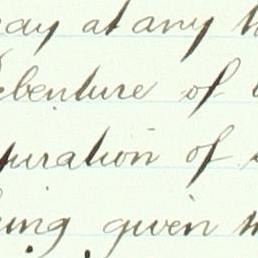 at any
ebenture of
uration of
ing given